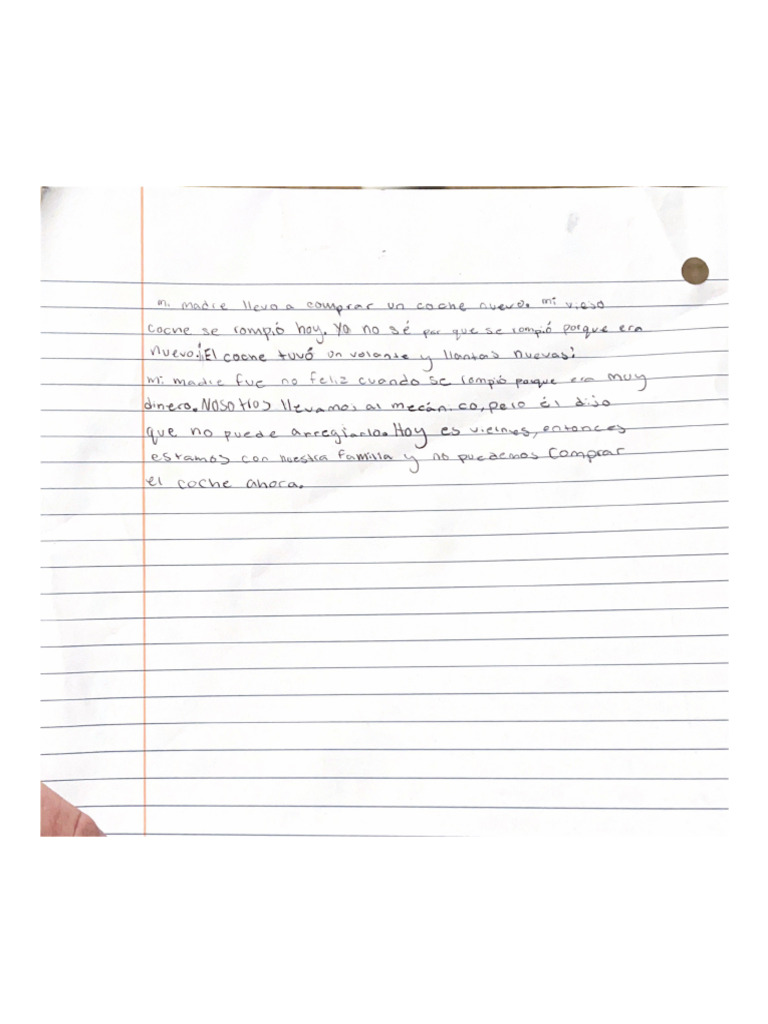 mi madre llevo a comprar un coche nuevo. mi viejo
coche se rompió hoy. Yo no sé por que se rompió porque era
nuevo. ¡El coche tuvó un volante y llantas nuevas!
mi madre fue no feliz cuando se rompió porque era muy
dinero. NOSOtros llevamos al mecánico, pero él dijo
que no puede arreglarlo. Hoy es viernes, entonces
estamos con nuestra familia y no puedemos comprar
el coche ahora.